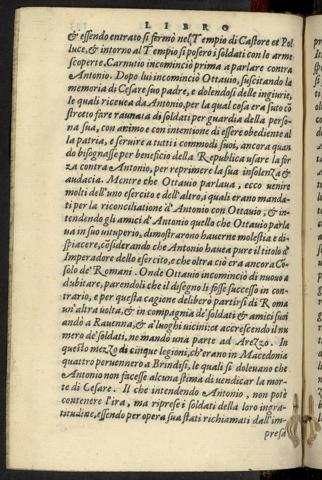 LIBRO
& essendo entrato si fermò nel Tempio di Castore et Pol
luce, & intorno al Tempio si posero i soldati con le arme
scoperte. Carnutio incominciò prima a parlare contra
Antonio. Dopo lui incominciò Ottauio, suscitando la
memoria di Cesare suo padre, e dolendosi delle ingiurie,
le quali riceuea da Antonio, per la qual cosa era suto cõ
stretto fare raunata di soldati per guardia della perso-
na sua, con animo e con intentione di essere obediente al
la patria, e seruire a tutti i commodi suoi, ancora quan
do bisognasse per beneficio della Republica usare la for
za contra Antonio, per reprimere la sua insolenza &
audacia. Mentre che Ottauio parlaua, ecco uenire
molti dell'uno esercito e dell'altro, i quali erano manda-
ti per la riconciliatione d'Antonio con Ottauio, & in-
tendendo gli amici d'Antonio quello che Ottauio parla
ua in suo uituperio, dimostrarono hauerne molestia e di-
spiacere, cõsiderando che Antonio hauea pure il titolo d'
Imperadore dello esercito, e che oltra ciò era ancora Cõ-
solo de' Romani. Onde Ottauio incominciò di nuouo a
dubitare, parendoli che il disegno li fosse successo in con-
trario, e per questa cagione deliberò partirsi di Roma
un'altra uolta, & in compagnia de' soldati & amici suoi
andò a Rauenna, & a' luoghi uicini: et accrescendo il nu
mero de' soldati, ne mandò una parte ad Arezzo. In
questo mezzo di cinque legioni, ch'erano in Macedonia
quattro peruennero a Brindisi, le quali si doleuano che
Antonio non facesse alcuna stima di uendicar la mor-
te di Cesare. Il che intendendo Antonio, non potè
contenere l'ira, ma riprese i soldati della loro ingra-
titudine, essendo per opera sua stati richiamati dall'im-
presa